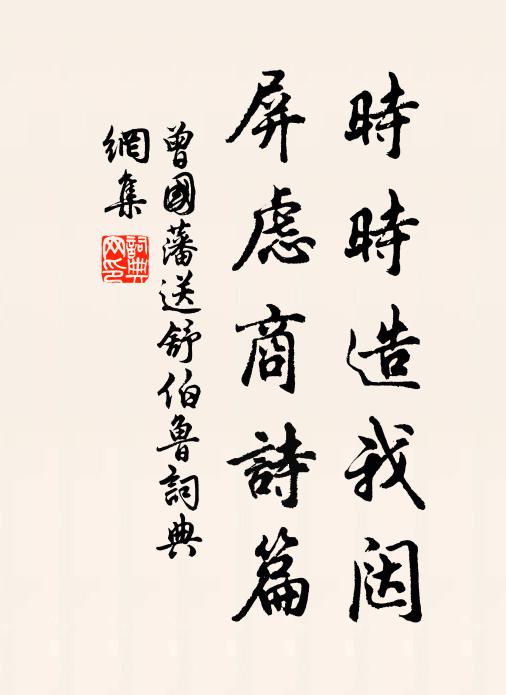 時時造我闼
屏慮商詩篇
曾國藩送舒伯魯詞典
網集
詞典網印